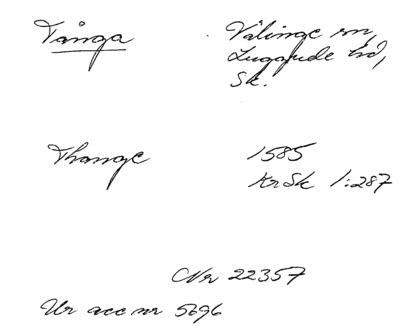 Tånga Välinge sn,
Luggude hd,
Sk.
Thange 1585
KrSk 1:287
Nr 22357
Ur acc nr 5696